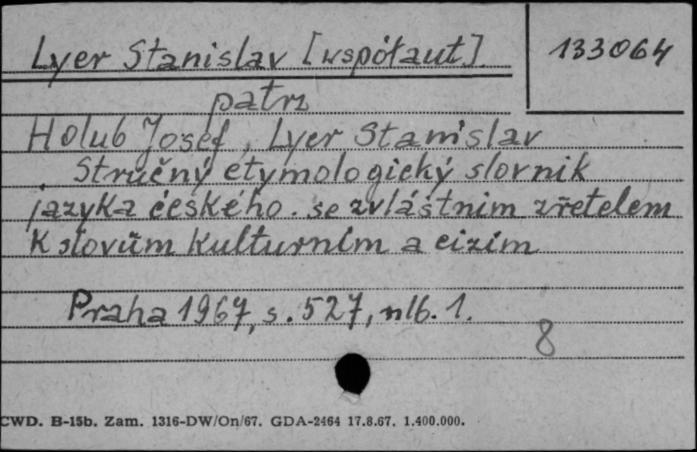 Lyer Stanislav [współaut].
133064
patrz
Holub Josef, Lyer Stanislav
Stručný etymologický slovnik
jazyka českého. se zvláštnim zřetelem
k slovům kulturním a cizím
Praha 1967, s. 527, nlb. 1.
8
CWD. B-15b. Zam. 1316-DW/On/67. GDA-2464 17.8.67. 1.400.000.